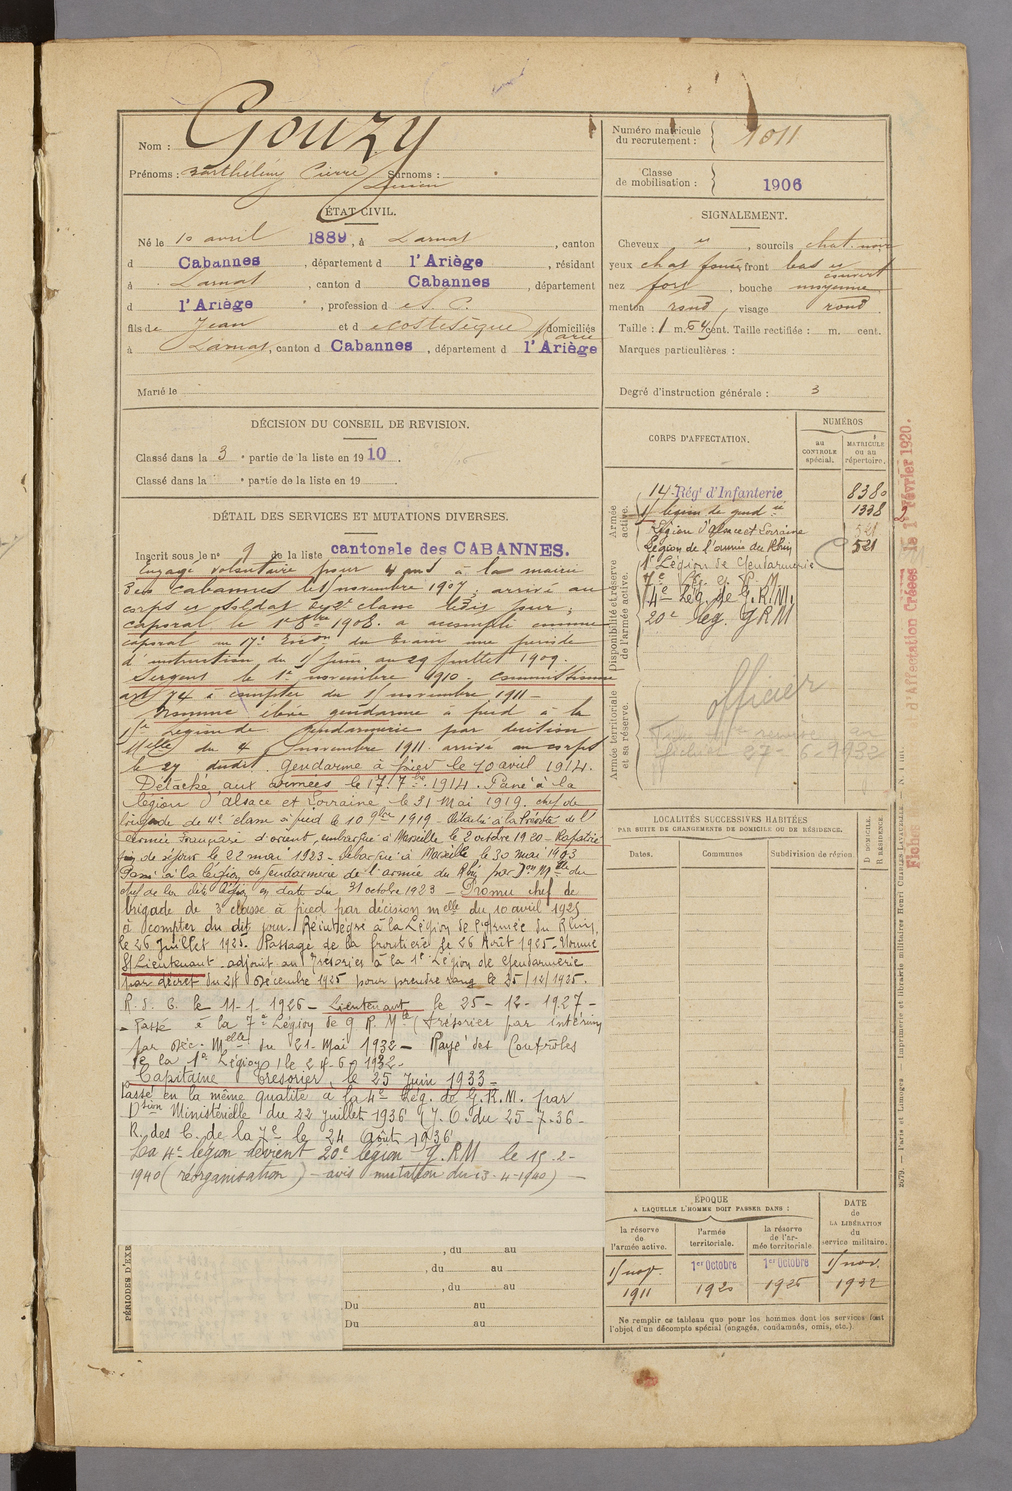 Nom : Gouzy
Prénoms : Barthélémy Pierre Surnoms :
Lucien
ÉTAT CIVIL.
Né le 10 avril 1889, à Larnat, canton
d Cabannes, département d l'Ariège, résidant
à Larnat, canton d Cabannes, département
d l'Ariège, profession d e S. C.
fils de Jean et d e Costesèque Marie domiciliés
à Larnat, canton d Cabannes, département d l'Ariège
Marié le
DÉCISION DU CONSEIL DE REVISION.
Classé dans la 3 e partie de la liste en 1910.
Classé dans la e partie de la liste en 19
DÉTAIL DES SERVICES ET MUTATIONS DIVERSES.
Inscrit sous le n° 9 de la liste cantonale des CABANNES.
Engagé volontaire pour 4 ans à la mairie
des Cabannes le 1/ novembre 1907, arrivé au
corps et soldat de 2e classe le dit jour;
caporal le 1er 8bre 1908. a accompli comme
caporal au 17e Escon du train une période
d'instruction du 1/ juin au 29 juillet 1909.
Sergent le 1er novembre 1910. Commissionné
art 74 à compter du 1/ novembre 1911 -
Nommé élève gendarme à pied à la
légion de gendarmerie par décision
Melle du 4 novembre 1911. arrivé au corps
le 27 dudit. Gendarme à pied le 10 avril 1914.
Détaché aux armées le 17. 7bre 1914. Passé à la
légion d'Alsace et Lorraine le 31 Mai 1919. chef de
brigade de 4e classe à pied le 10 9bre 1919 - Détaché à la Prévôté de l'
Armée Française d'orient, embarqué à Marseille le 2 octobre 1920 - Rapatrié
fin de séjour le 22 mai 1923 - débarqué à Marseille le 30 mai 1923
Passé à la légion de gendarmerie de l'armée du Rhin par Don Mlle du
chef de la dite légion en date du 31 octobre 1923 - Promu chef de
brigade de 3e classe à pied par décision melle du 10 avril 1925
à compter du dit jour. Réintégré à la Légion de l'Armée du Rhin,
le 26 Juillet 1925. Passage de la frontière le 26 Août 1925 - Nommé
S/Lieutenant adjoint au Trésorier à la 1e Légion de Gendarmerie
par décret du 24 Décembre 1925 pour prendre rang le 25/12/1925.
R. d. C. le 11-1-1926 - Lieutenant le 25-12-1927 -
- Passé à la 7e Légion de G R. Mle (trésorier par intérim)
par Déc. Melle du 21- Mai 1932 - Rayé des Contrôles
de la 1e Légion le 24-6-1932 -
Capitaine trésorier, le 25 Juin 1933 -
Passé en la même qualité à la 4e Lég. de G.R.M. par
Dsion Ministérielle du 22 juillet 1936 (J. O. du 25-7-36 -
R. des C. de la 7e le 24 Août 1936
La 4e légion devient 20e légion G.RM le 15-2-
1940 (réorganisation) - avis mutation du 13-4-1940) -
PÉRIODES D'EXE
, du au
, du au
, du au
Du au
Du au
Numéro matricule du recrutement : 1011
Classe de mobilisation : 1906
SIGNALEMENT.
Cheveux et, sourcils chat. noir
yeux chat foncé, front bas et
couvert
nez fort, bouche moyenne
menton rond, visage rond.
Taille : 1 m. 64 cent. Taille rectifiée : m. cent.
Marques particulières :
Degré d'instruction générale : 3
CORPS D'AFFECTATION.
NUMÉROS
au CONTROLE spécial.
MATRICULE ou au répertoire.
Armée active.
14e Régt d'Infanterie 8380
légion de gendie 1338
Légion d'Alsace et Lorraine 521
Légion de l'armée du Rhin 521
Disponibilité et réserve de l'armée active.
1e Légion de Gendarmerie
7e Lég. G. R. M
4e Lég. de G.R.M.
20e leg. GRM
Armée territoriale et sa réserve.
officier
27-6-1932
LOCALITÉS SUCCESSIVES HABITÉES
PAR SUITE DE CHANGEMENTS DE DOMICILE OU DE RÉSIDENCE.
Dates.
Communes
Subdivision de région.
D DOMICILE.
R RÉSIDENCE.
ÉPOQUE
A LAQUELLE L'HOMME DOIT PASSER DANS :
DATE de LA LIBÉRATION du service militaire.
la réserve de l'armée active.
l'armée territoriale.
la réserve de l'armée territoriale
1/ nov. 1911
1er Octobre 1920
1er Octobre 1926
1/ nov. 1932
Ne remplir ce tableau que pour les hommes dont les services font
l'objet d'un décompte spécial (engagés, condamnés, omis, etc.).
Fiches d'Affectation Créées le 1er Février 1920.
2679. — Paris et Limoges. — Imprimerie et librairie militaires Henri CHARLES-LAVAUZELLE